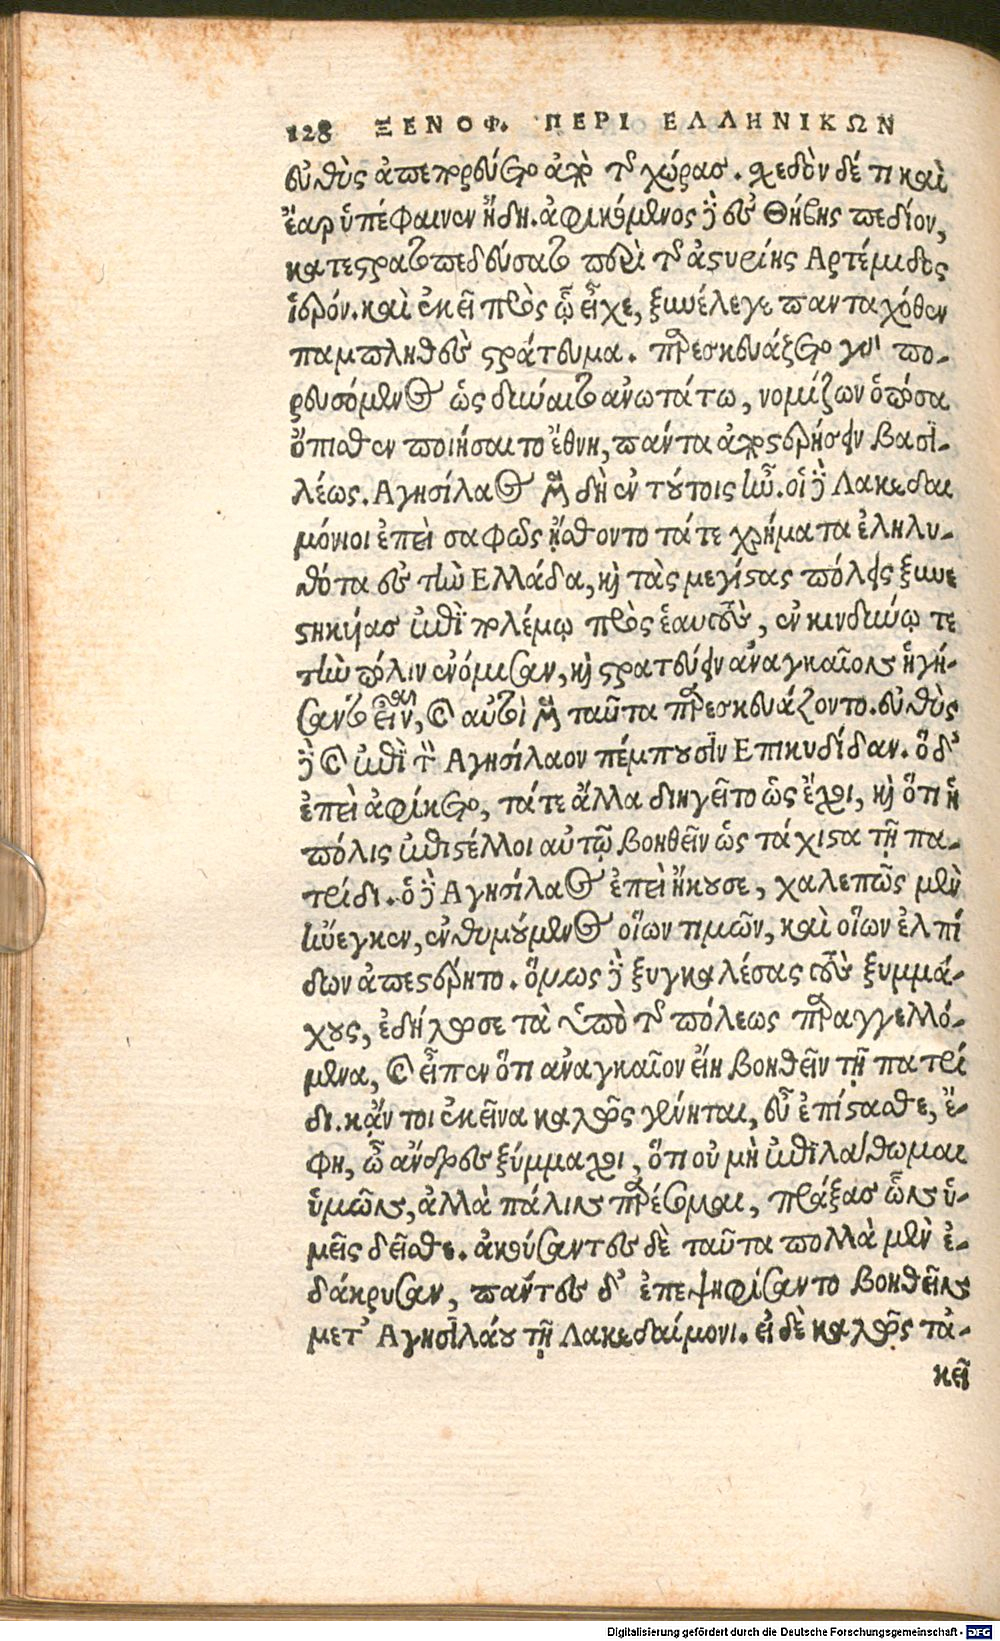 128 ΞΕΝΟΦ. ΠΕΡΙ ΕΛΛΗΝΙΚΩΝ
εὐθὺς ἀπεπορεύετο ἀπὸ τῆς χώρας. σχεδὸν δέ τι καὶ
ἔαρ ὑπέφαινεν ἤδη. ἀφικόμενος δὲ ἐς Θήβης πεδίον,
κατεστρατοπεδεύσατο περὶ τὸ ἀστυρίνης Αρτέμιδος
ἱερόν. καὶ ἐκεῖ πρὸς ᾧ εἶχε, ξυνέλεγε πανταχόθεν
παμπληθὲς στράτευμα. παρεσκευάζετο γὰρ πο-
ρευσόμενος ὡς δύναιτο ἀνωτάτω, νομίζων ὁπόσα
ὄπισθεν ποιήσαιτο ἔθνη, πάντα ἀποστερήσειν βασι-
λέως. Αγησίλαος μὲν δὴ ἐν τούτοις ἦν. οἱ δὲ Λακεδαι
μόνιοι ἐπεὶ σαφῶς ᾔσθοντο τά τε χρήματα ἐληλυ-
θότα ἐς τὴν Ελλάδα, καὶ τὰς μεγίστας πόλεις ξυνε
στηκυίας ἐπὶ πολέμῳ πρὸς ἑαυτοὺς, ἐν κινδύνῳ τε
τὴν πόλιν ἐνόμισαν, καὶ στρατεύειν ἀναγκαῖον ἡγή-
σαντο εἶναι, καὶ αὐτοὶ μὲν ταῦτα παρεσκευάζοντο. εὐθὺς
δὲ καὶ ἐπὶ τὸν Αγησίλαον πέμπουσιν Επικυδίδαν. ὁ δ'
ἐπεὶ ἀφίκετο, τά τε ἄλλα διηγεῖτο ὡς ἔχοι, καὶ ὅτι ἡ
πόλις ἐπιστέλλοι αὐτῷ βοηθεῖν ὡς τάχιστα τῇ πα-
τρίδι. ὁ δὲ Αγησίλαος ἐπεὶ ἤκουσε, χαλεπῶς μὲν
ἤνεγκεν, ἐνθυμούμενος οἵων τιμῶν, καὶ οἵων ἐλπί
δων ἀπεστέρητο. ὅμως δὲ ξυγκαλέσας τοὺς ξυμμά-
χους, ἐδήλωσε τὰ ὑπὸ τῆς πόλεως παραγγελλό-
μενα, καὶ εἶπεν ὅτι ἀναγκαῖον εἴη βοηθεῖν τῇ πατρί
δι. κἄν τοι ἐκεῖνα καλῶς γένηται, εὖ ἐπίστασθε, ἔ-
φη, ὦ ἄνδρες ξύμμαχοι, ὅτι οὐ μὴ ἐπιλάθωμαι
ὑμῶν, ἀλλὰ πάλιν παρέσομαι, πράξας ὧν ὑ-
μεῖς δεῖσθε. ἀκούσαντες δὲ ταῦτα πολλὰ μὲν ἐ-
δάκρυσαν, πάντες δ' ἐπεψηφίσαντο βοηθεῖν
μετ' Αγησιλάου τῇ Λακεδαίμονι. εἰ δὲ καλῶς τἀ-
κεῖ